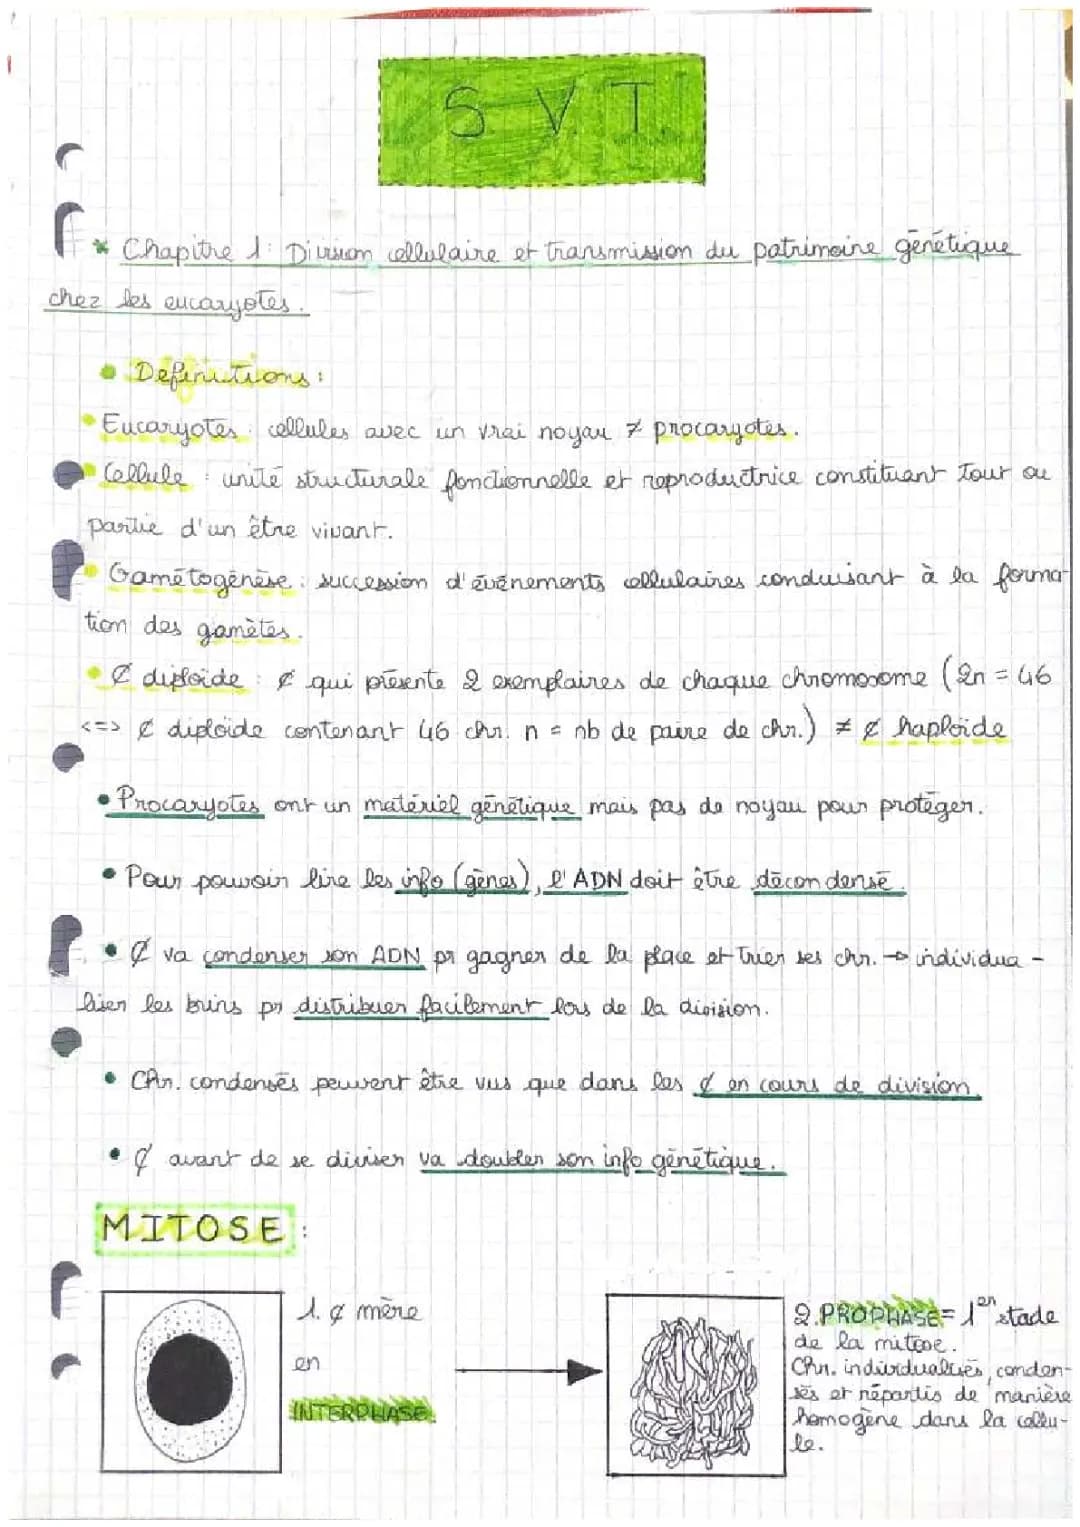 S V T
* Chapitre 1: Division cellulaire et transmission du patrimoine génétique
chez les eucaryotes.
• Definitions :
• Eucaryotes : cellules avec un vrai noyau ≠ procaryotes.
• Cellule : unité structurale fonctionnelle et reproductrice constituant tout ou
partie d'un être vivant.
• Gamétogénèse : succession d'événements cellulaires conduisant à la forma-
tion des gamètes.
• ₵ diploïde : ₵ qui présente 2 exemplaires de chaque chromosome (2n = 46
<=> ₵ diploïde contenant 46 chr. n = nb de paire de chr.) ≠ ₵ haploïde
• Procaryotes ont un matériel génétique mais pas de noyau pour protéger.
• Pour pouvoir lire les info (gènes), l'ADN doit être décondensé.
• ₵ va condenser son ADN pr gagner de la place et trier ses chr. → individua-
liser les brins pr distribuer facilement lors de la division.
• Chr. condensés peuvent être vus que dans les ₵ en cours de division.
• ₵ avant de se diviser va doubler son info génétique.
MITOSE :
1. ₵ mère
en
INTERPHASE.
2. PROPHASE = 1er stade
de la mitose.
Chr. individualisés, conden-
sés et répartis de manière
homogène dans la cellu-
le.